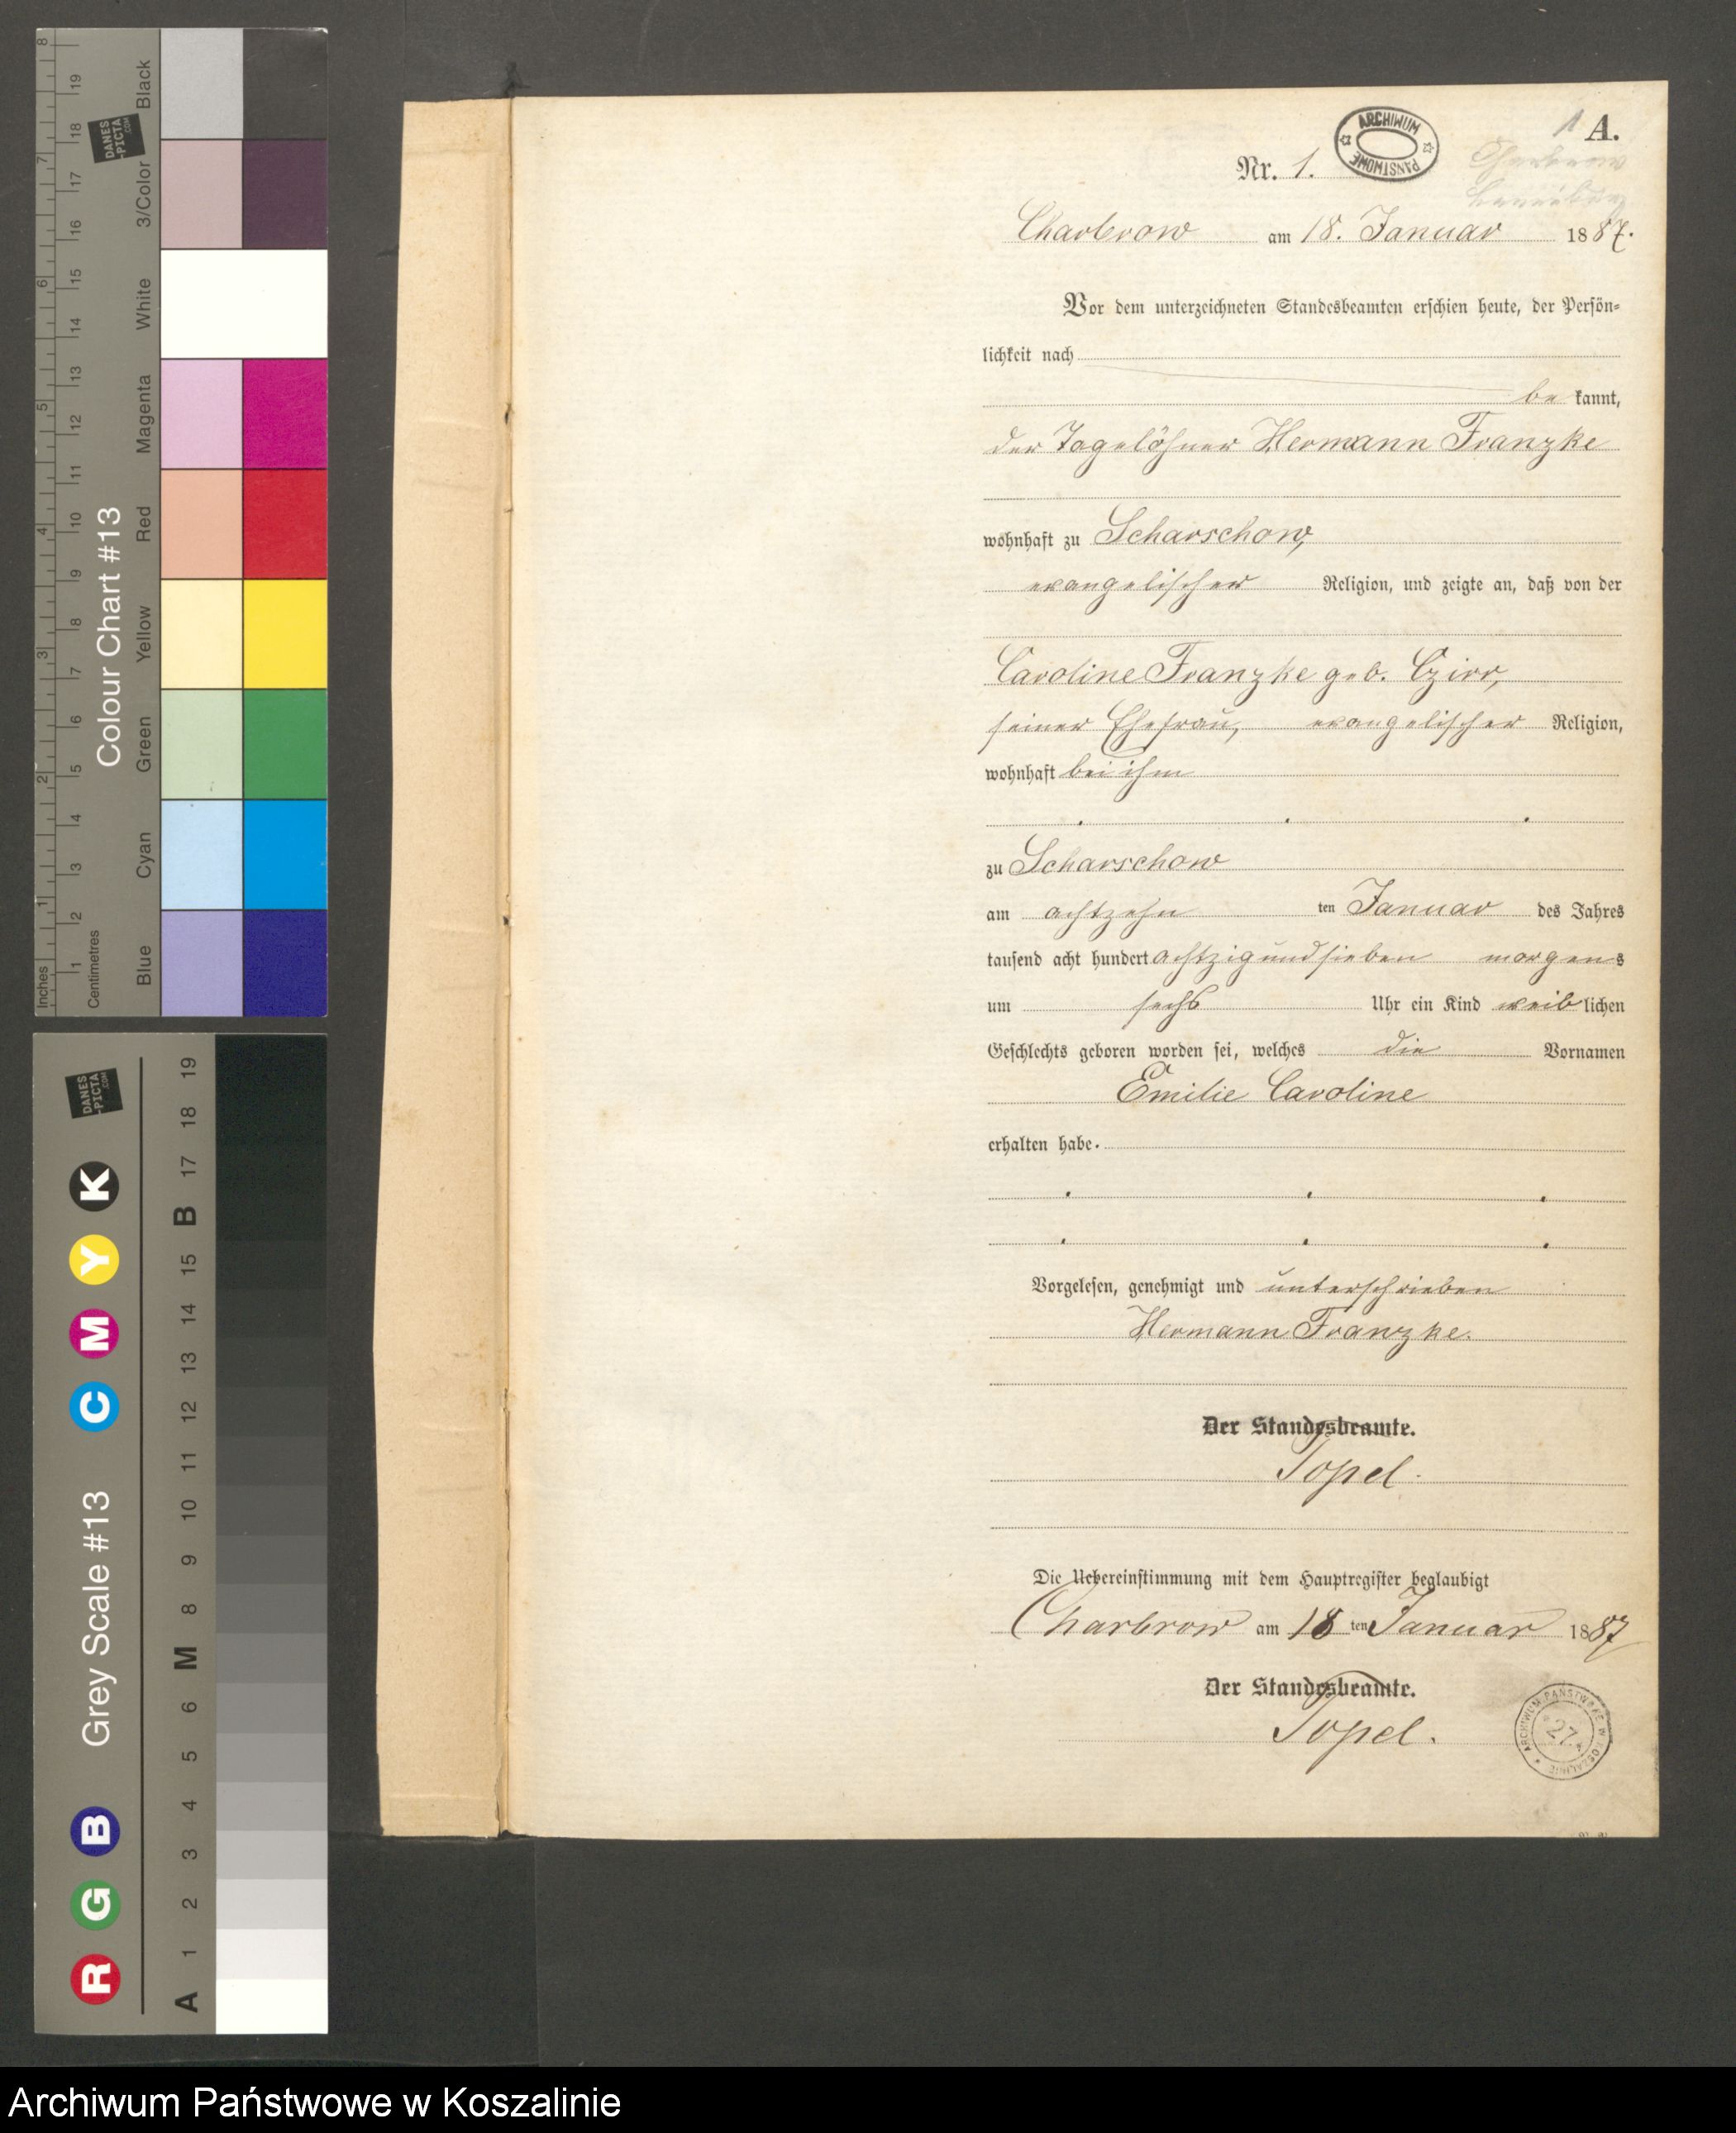 A.
Nr. 1.
ARCHIWUM PAŃSTWOWE
Charbrow am 18. Januar 1887.
Vor dem unterzeichneten Standesbeamten erschien heute, der Persön-
lichkeit nach
be kannt,
der Tagelöhner Hermann Franzke
wohnhaft zu Scharschow,
evangelischer Religion, und zeigte an, daß von der
Caroline Franzke geb. Czirr,
seiner Ehefrau, evangelischer Religion,
wohnhaft bei ihm
zu Scharschow
am achtzehn ten Januar des Jahres
tausend acht hundert achtzig und sieben morgens
um sechs Uhr ein Kind weiblichen
Geschlechts geboren worden sei, welches die Vornamen
Emilie Caroline
erhalten habe.
Vorgelesen, genehmigt und unterschrieben
Hermann Franzke.
Der Standesbeamte.
Topel.
Die Uebereinstimmung mit dem Hauptregister beglaubigt
Charbrow am 18 ten Januar 1887
Der Standesbeamte.
Topel.
ARCHIWUM PAŃSTWOWE W KOSZALINIE
27
Colour Chart #13
Black
3/Color
White
Magenta
Red
Yellow
Green
Cyan
Blue
Inches
1 2 3 4 5 6 7 8
Centimetres
1 2 3 4 5 6 7 8 9 10 11 12 13 14 15 16 17 18 19
DANES
-PICTA
.COM
Grey Scale #13
R G B C M Y K
A 1 2 3 4 5 6 M 8 9 10 11 12 13 14 15 B 17 18 19
DANES
-PICTA
.COM
Archiwum Państwowe w Koszalinie